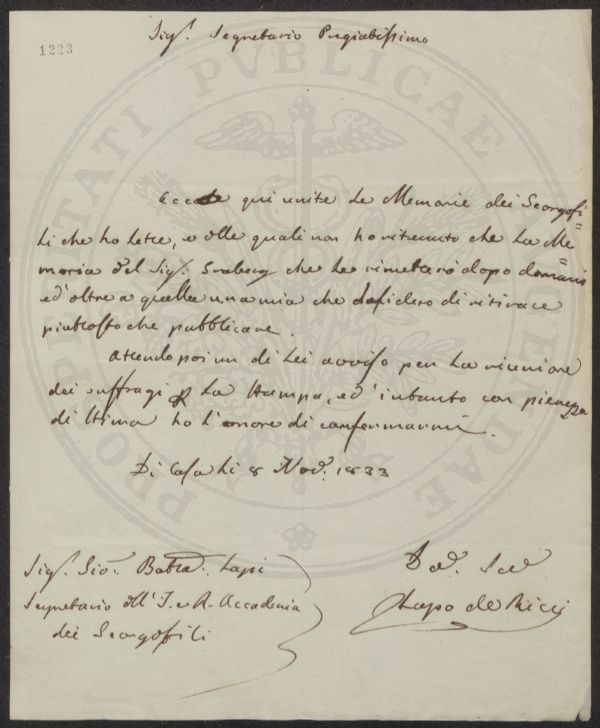 Sig.r Segretario Pregiatissimo
1223
PROSPERITATI PVBLICAE AVGENDAE
Accate qui unite le Memorie dei Georgofi=
li che ho lette, e delle quali non ho ritenuto che la Me=
moria del Sig.r Graberg che le rimetterò dopo domani
ed'oltre a quella una mia che desidero di ritirare
piuttosto che pubblicare.
Attendo poi un di Lei avviso per la riunione
dei suffragi per la stampa, ed'intanto con pienezza
di stima ho l'onore di confermarmi.
Di Casa li 8 Nov.e 1833
Sig.r Gio. Batta. Lapi
Segretario dell'I. e R. Accademia
dei Georgofili
Lapo de Ricci